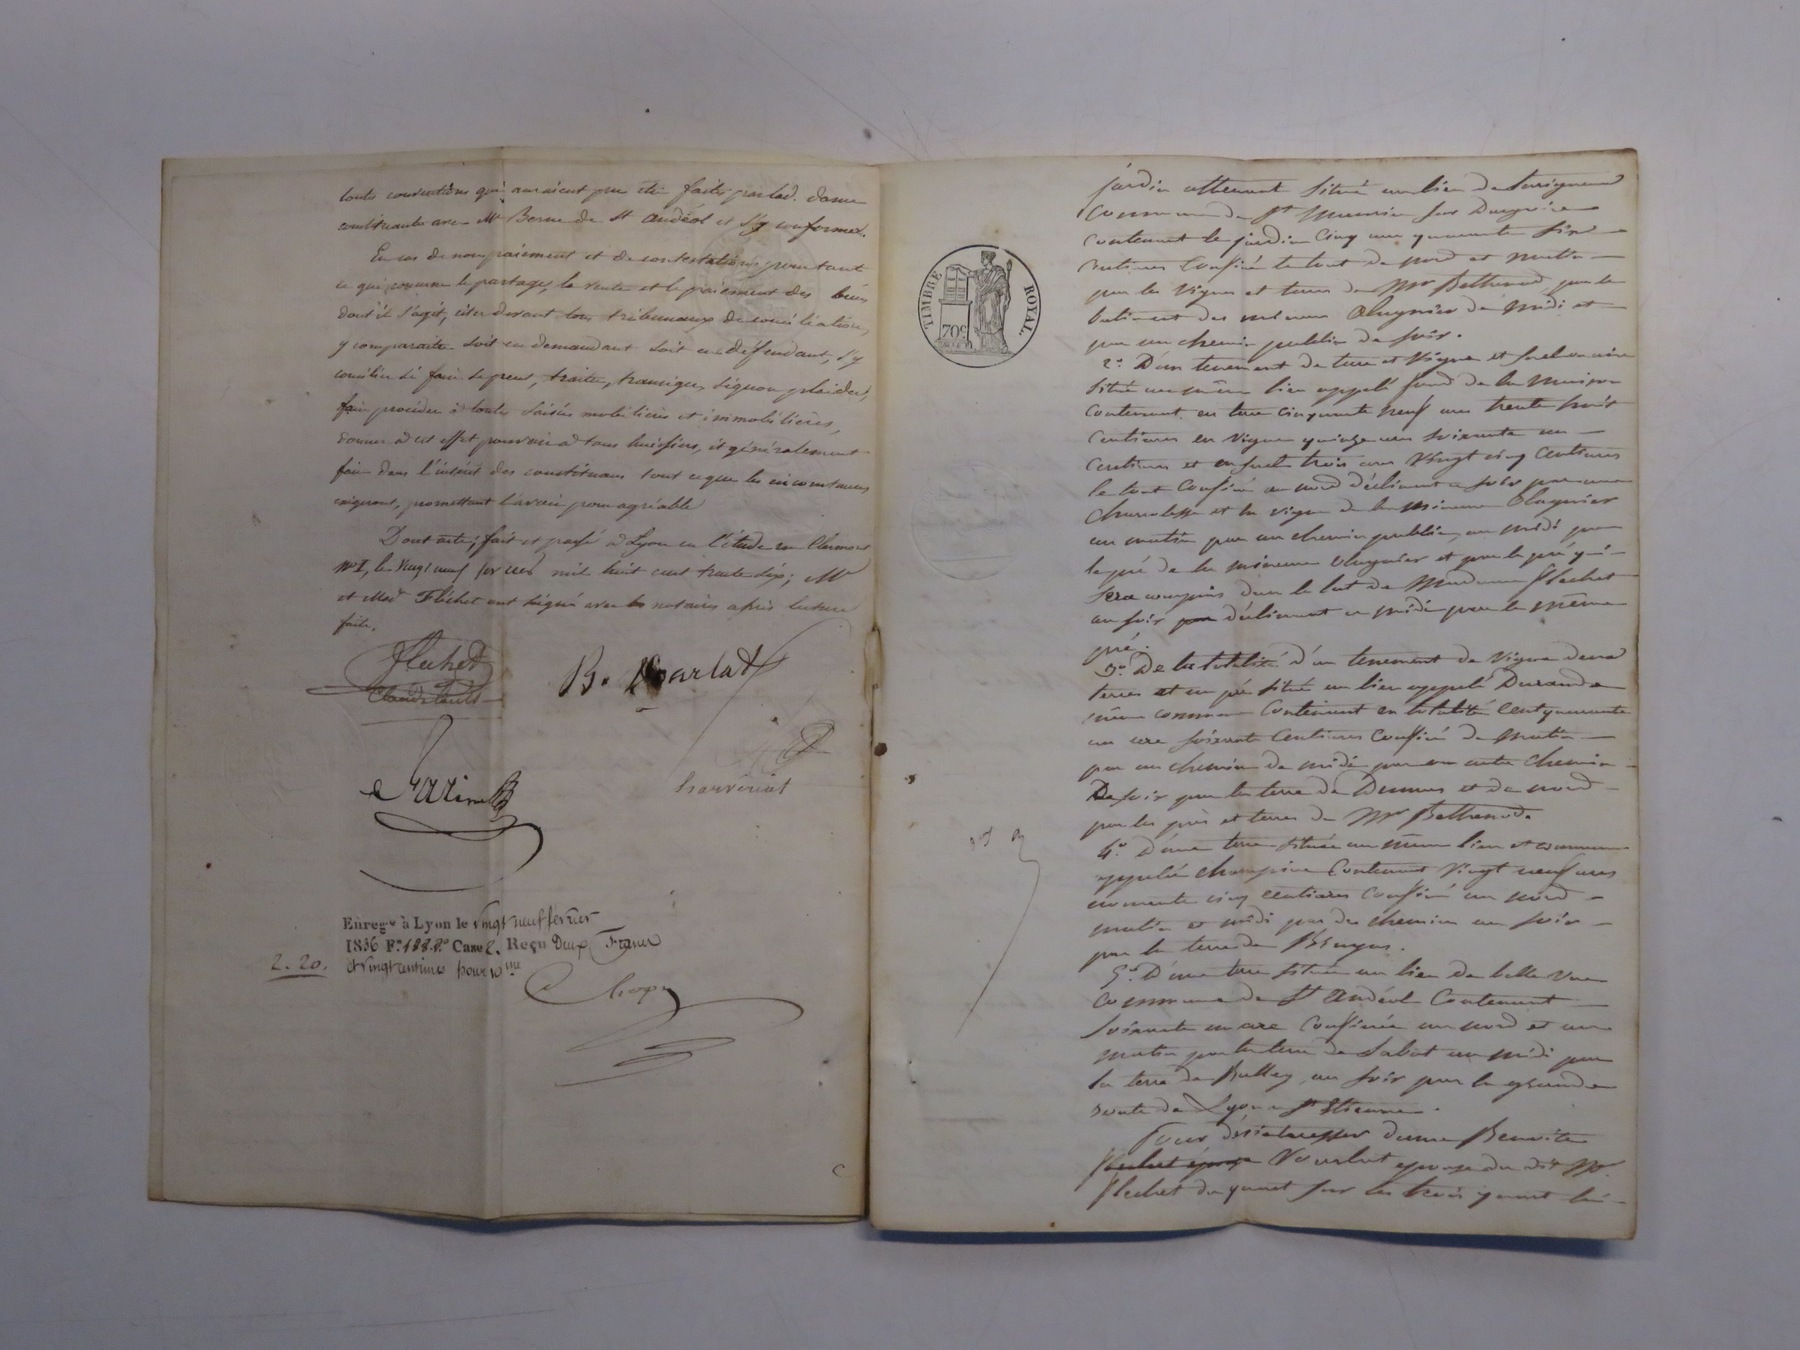 toutes conventions qui auraient pu être faites par lad. dame
constituante avec Mr Berne de St Andéol et s'y conformer.
En cas de non paiement et de contestations pour tout
ce qui concerne le partage, la vente et le paiement des biens
dont il s'agit, citer devant tous tribunaux de conciliation,
y comparaitre soit en demandant soit en défendant, s'y
concilier si faire se peut, traiter, transiger, sinon plaider,
faire procéder à toutes saisies mobilières et immobilières,
donner à cet effet pouvoir à tous huissiers, et généralement
faire dans l'intérêt des constituans tout ce que les circonstances
exigeront, promettant l'avoir pour agréable
Dont acte; fait et passé à Lyon en l'étude rue Clermont
No 1, le vingt neuf février mil huit cent trente six; Mr
et Made Fléchet ont signé avec les notaires après lecture
faite.
Flechet
B. Vourlat
harvériat
Enregé à Lyon le vingt neuf février
1836 Fo 188 Ro Case 2. Reçu Deux Francs
et vingt centimes pour 10me
2.20.
TIMBRE ROYAL
70c
jardin attenant situé au lieu de
Commune de St Maurice sur Dargoire
contenant le jardin cinq ares quarante six
centiares Confiné le tout de nord et matin
par les vignes et terres de Mr Bethenod, par le
batiment des mineurs de midi et
par un chemin public de soir.
2o D'un tenement de terre et vigne et
situé au même lieu appelé fond de la maison
Contenant en terre cinquante neuf ares trente huit
Centiares en vigne quinze ares soixante un
Centiares et en trois ares vingt cinq Centiares
le tout Confiné au nord déclinant a soir par une
et la vigne de la mineure
au matin par un chemin public, au midi par
le pré de la mineure et par le pré qui
sera compris dans le lot de Madame fléchet
au soir par déclinant a midi par le même
pré.
3o De la totalité d'un tenement de vigne deux
terres et un pré situé au lieu appelé Durande
même commune Contenant en totalité Cent quarante
un are soixante Centiares Confiné de matin
par un chemin de midi par un autre Chemin
De soir par la terre de Dumas et de nord
par les prés et terres de Mr Bethenod.
4o D'une terre située au même lieu et commune
appelée Contenant vingt neuf ares
cinq centiares Confiné au nord
matin et midi par des chemin au soir
par la terre de
5o D'une terre située au lieu de belle vue
Commune de St Andéol Contenant
soixante un are Confinée au nord et au
matin par la terre de Sabot au midi par
la terre de au soir par la grande
route de Lyon a St Etienne.
Pour dame Benoite
flechet épouse Vourlat epouse du dit Mr
flechet du quart sur les trois quart